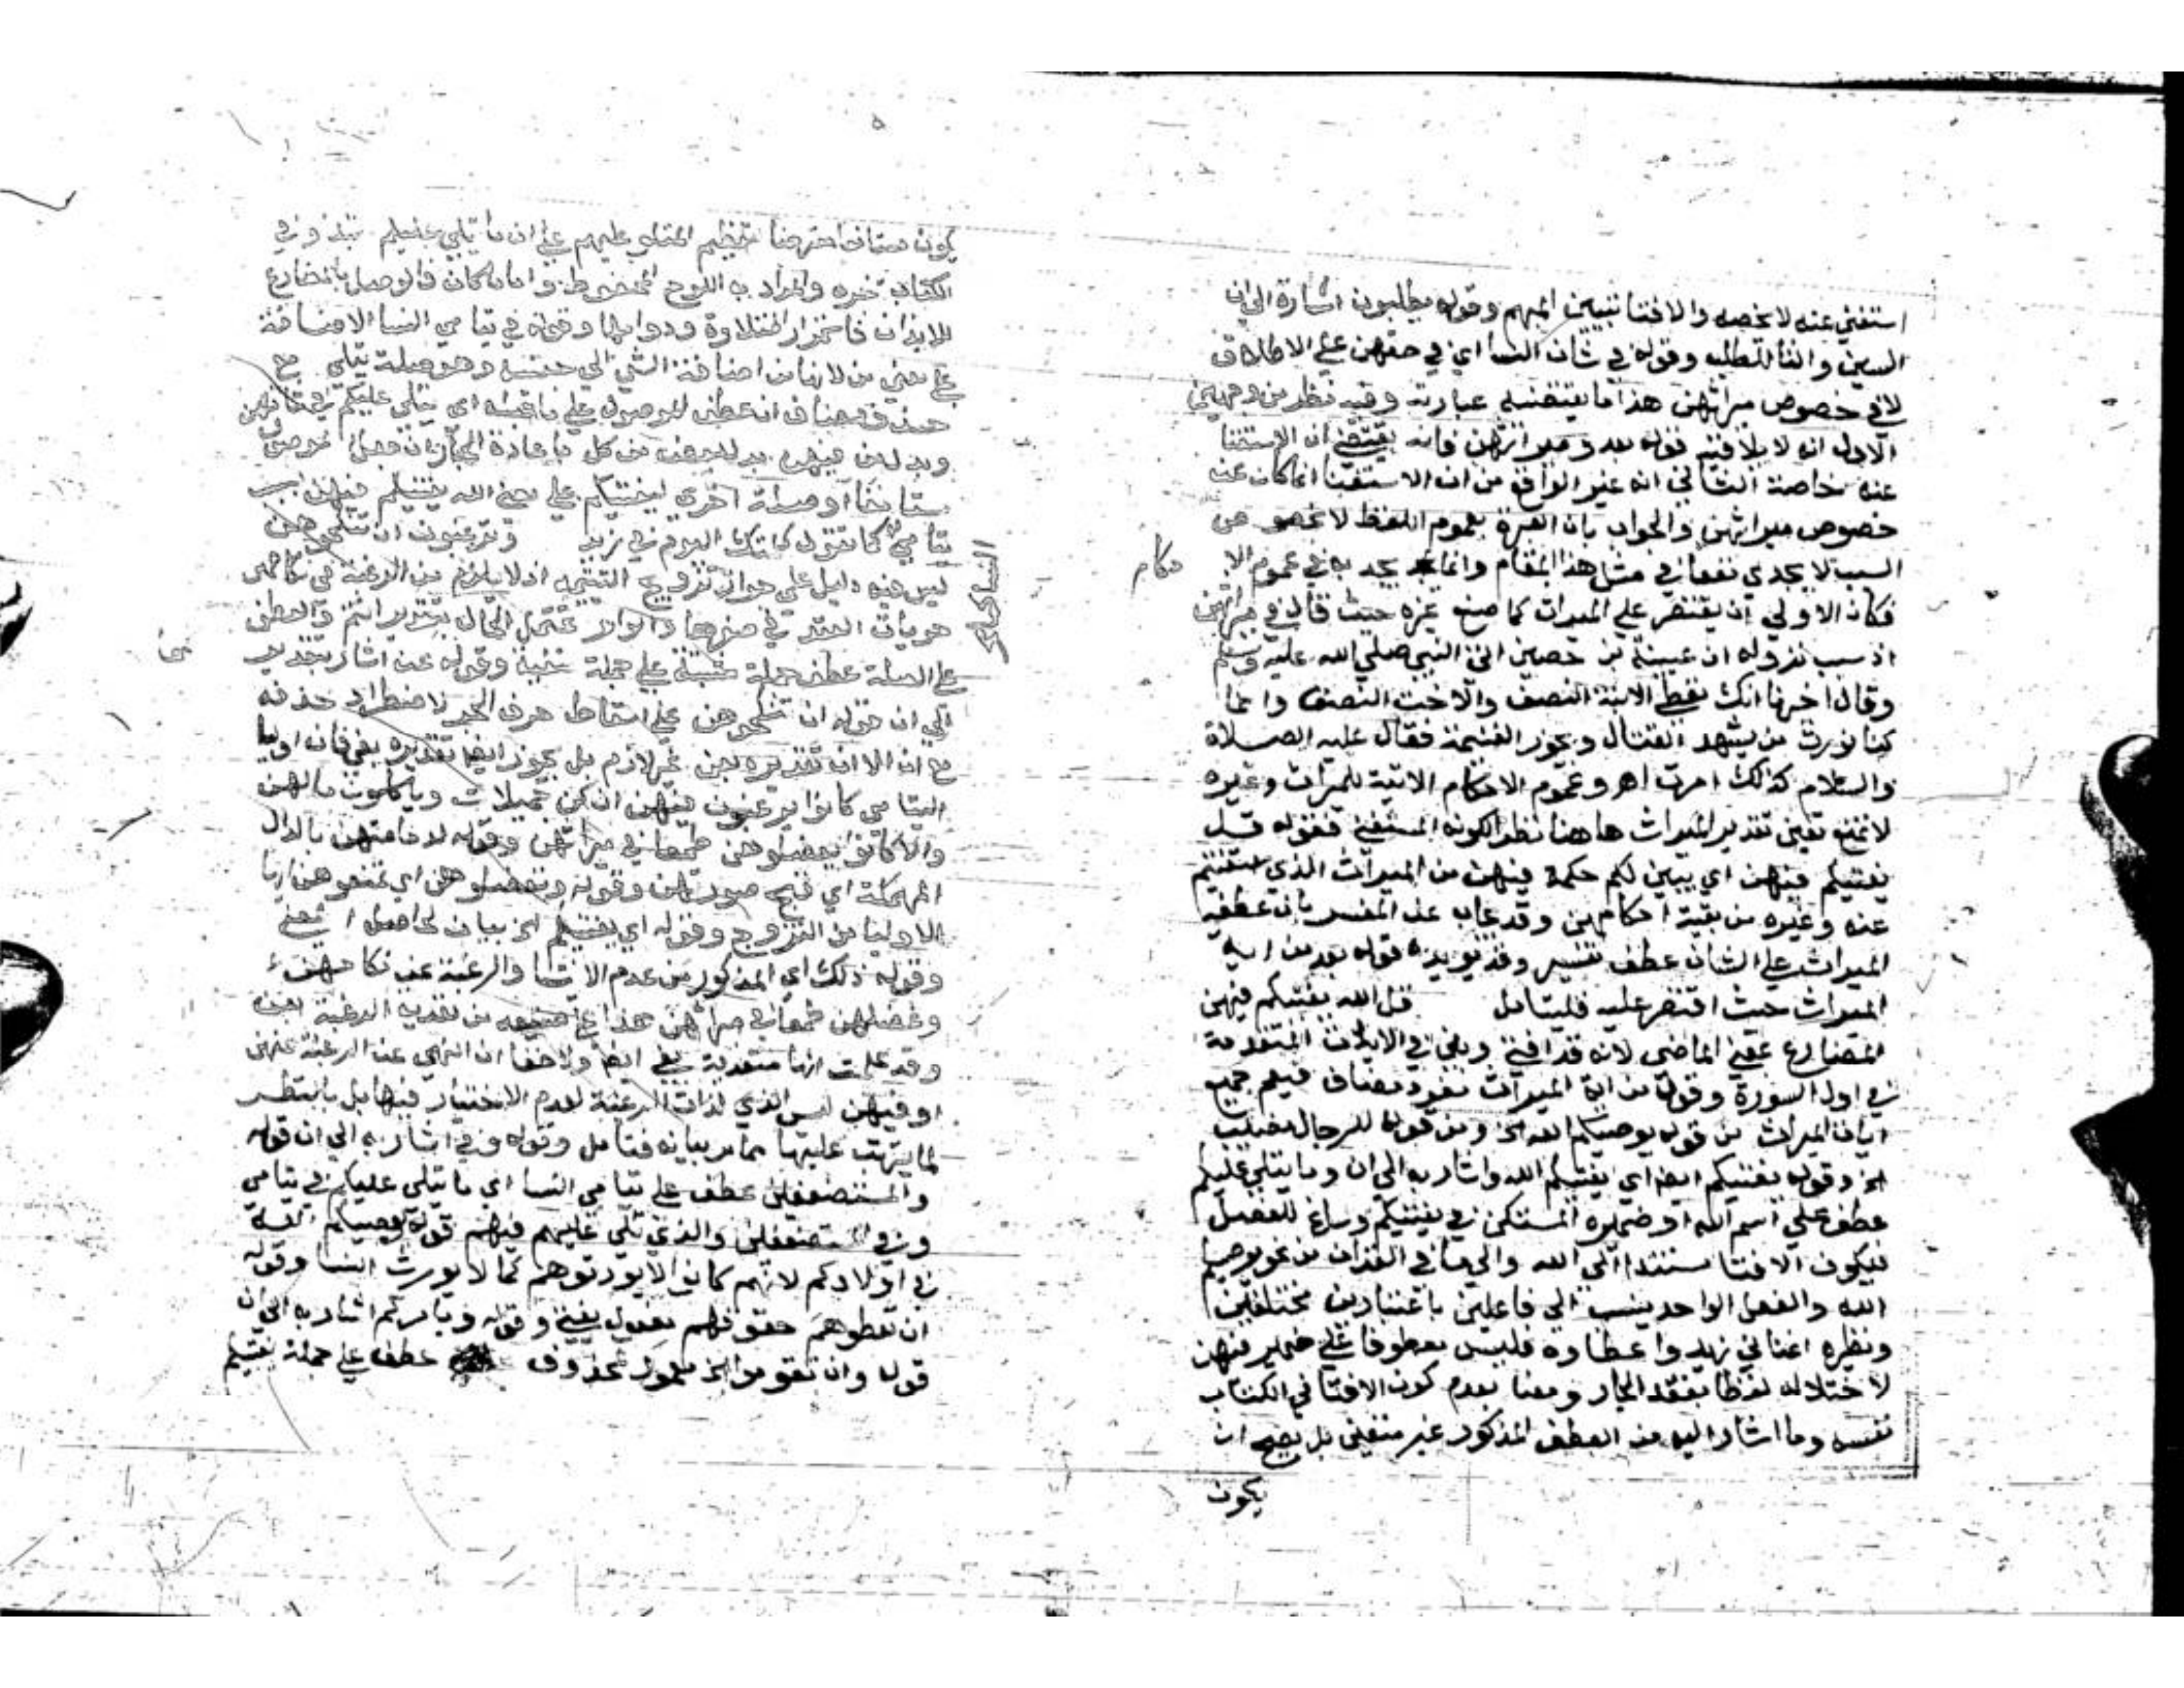 استفتي عنه لا يخصه والافتا تبيين المبهم وقوله يطلبون اشارة الي ان
السين والتا للطلب وقوله في شان النسا اي في حقهن علي الاطلاق
لا في خصوص ميراثهن هذا ما يقتضيه عبارته وفيه نظر من وجهين
الاول انه لا يلاقيه قوله بعد وميراثهن فانه يقتضي ان الاستفتا
عنه خاصة الثاني انه غير الواقع من ان الاستفتا انما كان عن
خصوص ميراثهن والجواب بان العبرة بعموم اللفظ لا بخصوص
السبب لا يجدي نفعا في مثل هذا المقام وانما يجد به في عموم الاحكام
فكان الاولي ان يقتصر علي الميراث كما صنع غيره حيث قال في ميراثهن
اذ سبب نزوله ان عيينة بن حصين اتي النبي صلي الله عليه وسلم
وقال اخبرنا انك تعطي الابنة النصف والاخت النصف وانما
كنا نورث من يشهد القتال ويحوز الغنيمة فقال عليه الصلاة
والسلام كذلك امرت اهـ وعموم الاحكام الاتية للميراث وغيره
لا يمنع تعين تقدير الميراث هاهنا نظرا لكونه المستفتي فقوله قل
يفتيكم فيهن اي يبين لكم حكمه فيهن من الميراث الذي استفتيتم
عنه وغيره من بقية احكامهن وقد يجاب عن المفسر بان عطفه
الميراث علي الشان عطف تفسير وقد يويده قوله بعد من اية
الميراث حيث اقتصر عليه فليتامل قل الله يفتيكم فيهن
المضارع بمعني الماضي لانه قد افتي وبين في الايات المتقدمة
في اول السورة وقوله من اية الميراث مفرد مضاف فيعم جميع
ايات الميراث من قوله يوصيكم الله الخ ومن قوله للرجال نصيب
الخ وقوله يفتيكم ايضا اي يفتيكم الله واشار به الي ان وما يتلي عليكم
عطف علي اسم الله او ضميره المستكن في يفتيكم وساغ للفصل
فيكون الافتا مستندا الي الله والي ما في القران من نحو يوصيكم
الله والفعل الواحد ينسب الي فاعلين باعتبارين مختلفين
ونظيره اغناني زيد وعطاوه فليس معطوفا علي ضمير فيهن
لاختلاله لفظا بفقد الجار ومعنا بعدم كون الافتا في الكتاب
نفسه وما اشار اليه من العطف المذكور غير متعين بل يصح ان
يكون
يكون مستانفا لتعظيم المتلو عليهم علي ان ما يتلي عليكم مبتدا وفي
الكتاب خبره والمراد به اللوح المحفوظ واياما كان فالوصل بالمضارع
للايذان باستمرار التلاوة ودوامها وقوله في يتامي النسا الاضافة
علي معني من لانها من اضافة الشي الي جنسه وهو صلة يتلي مع
حذف مضاف ان عطف الموصول علي ما قبله اي يتلي عليكم في شانهن
وبدل من فيهن بدل بعض من كل باعادة الجار ان جعل الموصول
مستانفا او صلة اخري ليفتيكم علي معني الله يفتيكم فيهن بسبب
يتامي كما تقول كلمتك اليوم في زيد وترغبون ان تنكحوهن
ليس فيه دليل علي جواز تزويج اليتيمة اذ لا يلزم من الرغبة في نكاحهن
جريان العقد في صغرها والواو تحتمل الحال بتقدير انتم والعطف
علي الصلة عطف جملة مثبتة علي جملة منفية وقوله عن اشار بتقدير
الي ان قوله ان تنكحوهن علي اسقاط حرف الجر لاضطراد حذفه
مع ان الا ان تقديره بعن غير لازم بل يجوز ايضا تقديره بفي فان اوليا
اليتامي كانوا يرغبون فيهن ان كن جميلات وياكلون مالهن
والا كانوا يعضلوهن طمعا في ميراثهن وقوله لدمامتهن بالدال
المهملة اي قبح صورتهن وقوله وتعضلوهن اي تمنعوهن ايها
الاوليا من التزوج وقوله اي يفتيكم الخ بيان لحاصل المعني
وقوله ذلك اي المذكور من عدم الايتا والرغبة عن نكاحهن
وعضلهن طمعا في ميراثهن هذا علي صنيعه من تعدية الرغبة بعن
وقد علمت انها متعدية بفي ايضا ولا خفا ان النهي عن الرغبة عنهن
او فيهن ليس الذي لذات الرغبة لعدم الاختيار فيها بل بالنظر
لما يترتب عليها مما مر بيانه فتامل وقوله وفي اشار به الي ان قوله
والمستضعفين عطف علي يتامي النسا اي ما يتلي عليكم في يتامي
وفي المستضعفين والذي تلي عليهم فيهم قوله يوصيكم الله
في اولادكم لانهم كانوا لا يورثوهم كما لا يورث النسا وقوله
ان تعطوهم حقوقهم مفعول يفتي وقوله ويامركم اشار به الي ان
قوله وان تقوموا الخ معمول لمحذوف عطف علي جملة يفتيكم